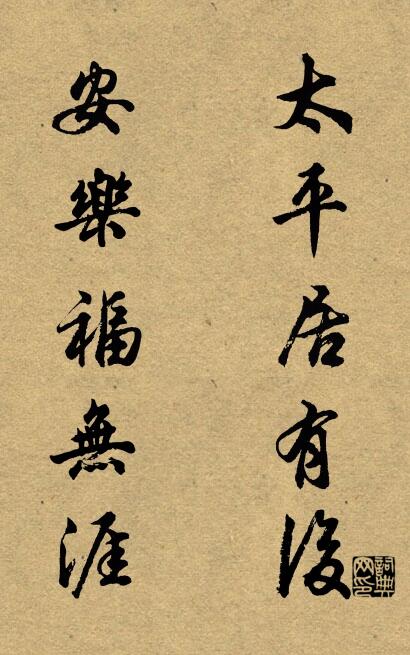 太平居有後
安樂福無涯
詞典网印